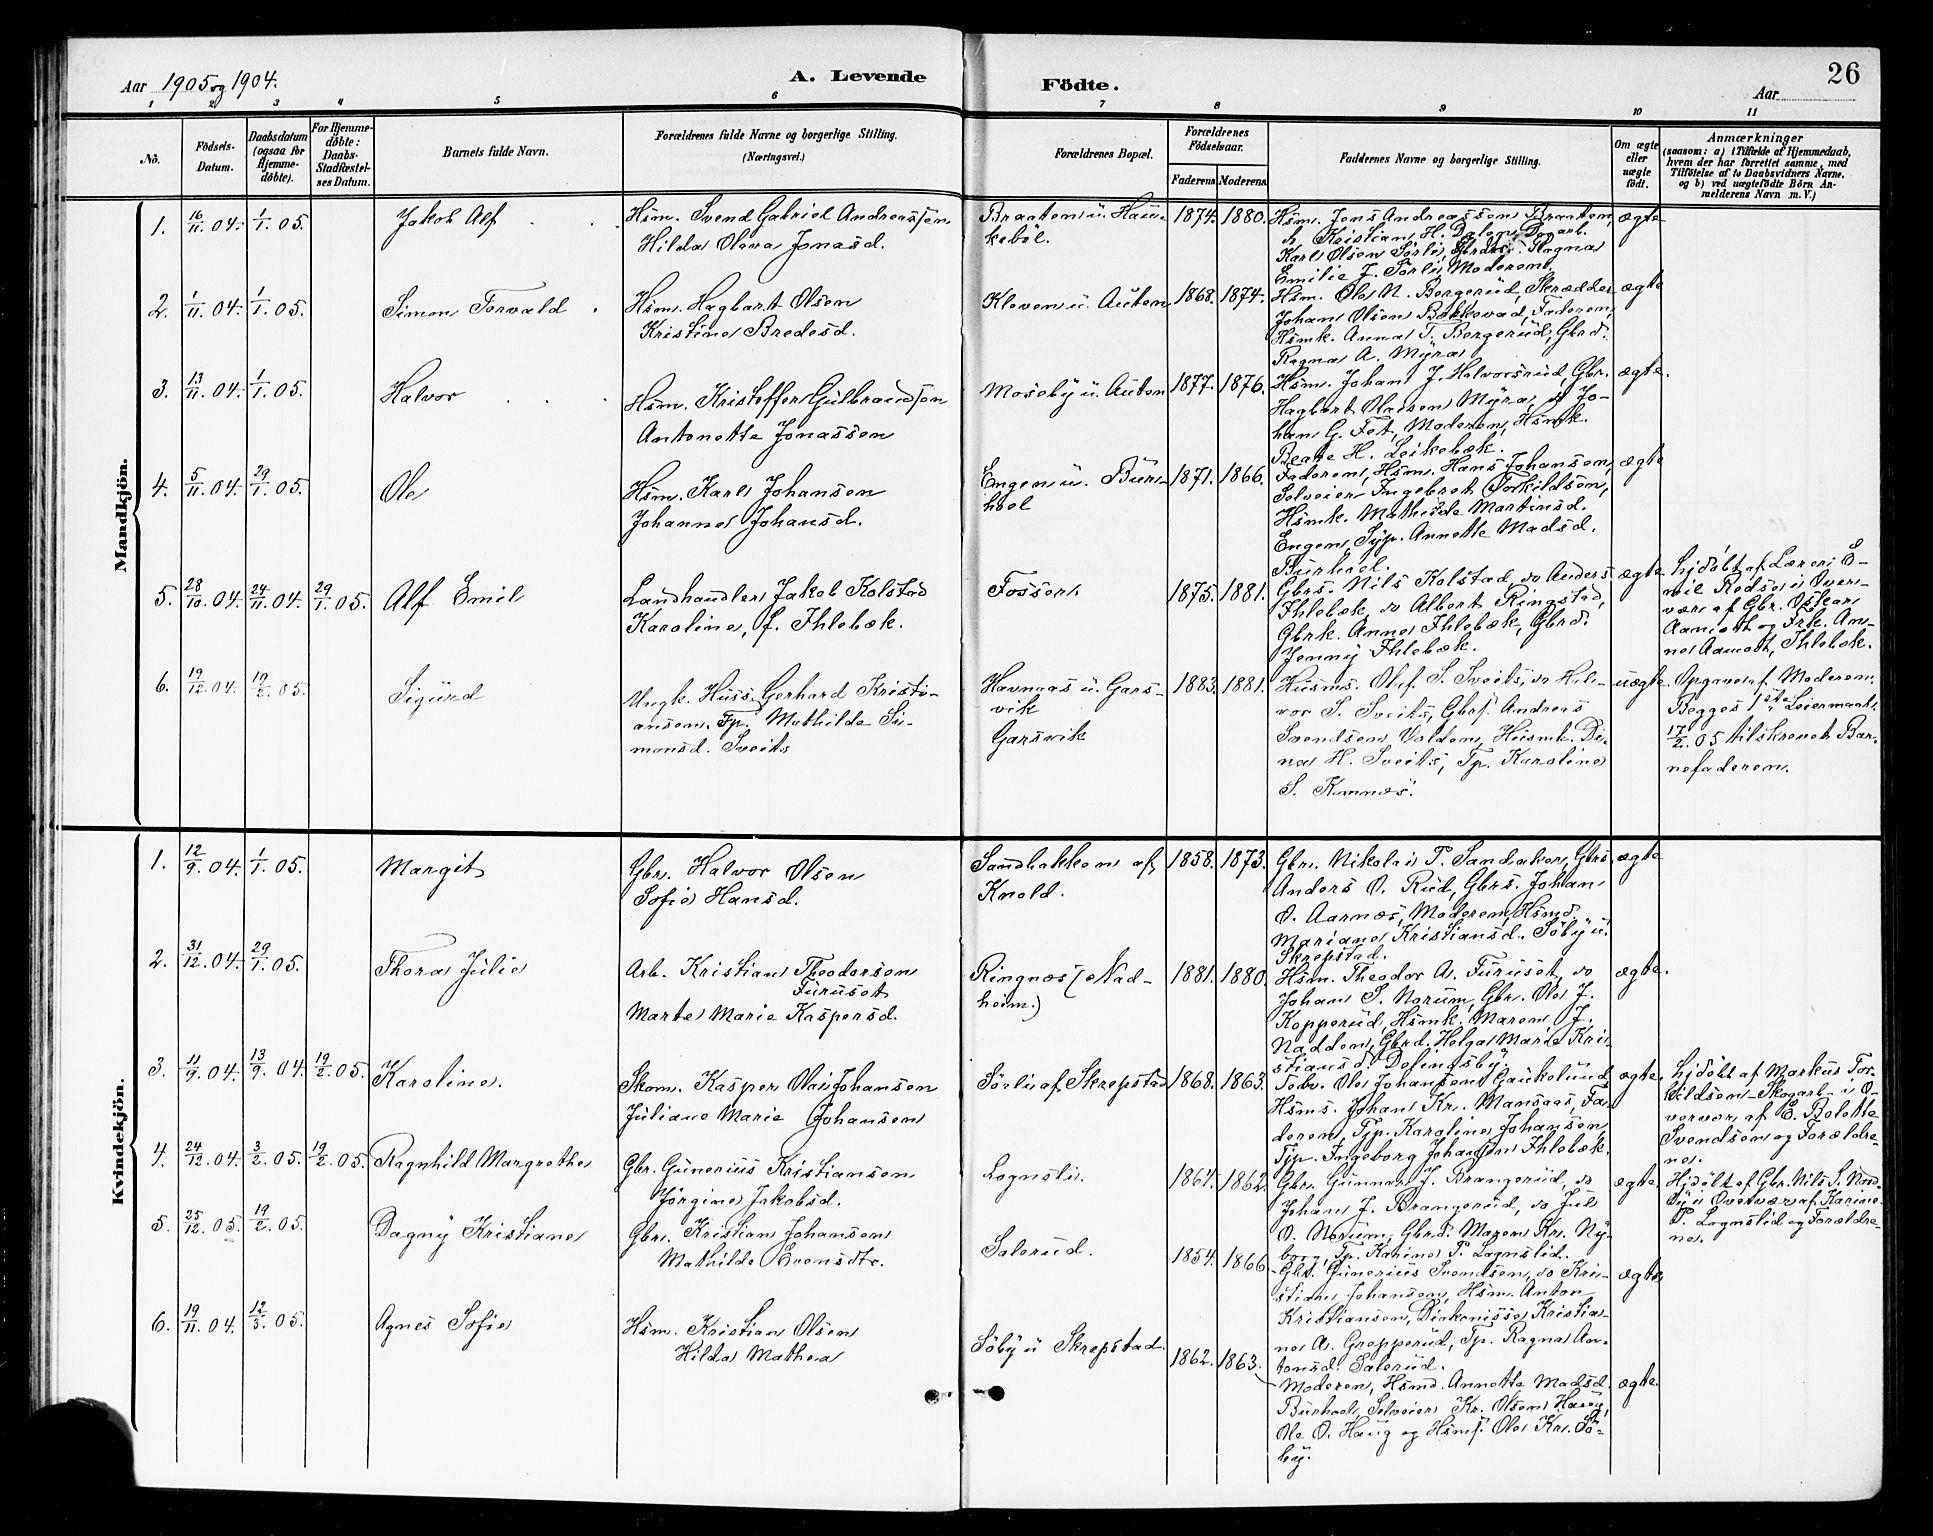 Aar 1905 og 1904.
A. Levende Födte.
26
Aar
1 2 3 4 5 6 7 8 9 10 11
No.
Födsels-Datum.
Daabsdatum (ogsaa for Hjemme-döbte).
For Hjemme-döbte: Daabs-Stadfæstel-ses Datum.
Barnets fulde Navn.
Forældrenes fulde Navne og borgerlige Stilling. (Næringsvei.)
Forældrenes Bopæl.
Forældrenes Födselsaar.
Faderens. Moderens.
Faddernes Navne og borgerlige Stilling.
Om ægte eller uægte födt.
Anmærkninger
(saasom: a) i Tilfælde af Hjemmedaab,
hvem der har forrettet samme, med
Tilföielse af to Daabsvidners Navne,
og b) ved uægtefödte Börn An-
melderens Navn m. V.)
Mandkjön.
1. 16/11 04. 1/1 05. Jakob Alf
Hsm. Svend Gabriel Andreassen
Hilda Oleva Jonasd.
Braaten u. Hau-
keböl.
1874. 1880.
Hsm. Jens Andreassen Braaten,
Kristian H. Dalen, Dagarb.
Karl Olsen Sörli, Gbrd. Ragna
Emilie J. Sörli, Moderen.
ægte
2. 1/11 04. 1/1 05. Simon Torvald
Hsm. Hagbart Olsen
Kristine Bredesd.
Kleven u. Auten
1868. 1874.
Hsm. Ole N. Borgerud, Skrædder
Johan Olsen Bakkevad, Faderen,
Hsmk. Anna T. Borgerud, Gbrd.
Ragna A. Myra
ægte
3. 13/11 04. 1/1 05. Halvor
Hsm. Kristoffer Gulbrandsen
Antonette Jonassen
Moseby u. Auten
1877. 1876.
Hsm. Johan J. Halvorsrud, Gbr.
Hagbart Olausen Myra, do Jo-
han G. Fet, Moderen, Hsmk.
Beate H. Leikebæk.
ægte.
4. 5/11 04. 29/1 05. Ole
Hsm. Karl Johansen
Johanne Johansd.
Engen u. Bur-
hoel
1871. 1866.
Faderen, Hsm. Hans Johansen,
Selveier Ingebret Torkildsen,
Hsmk. Mathilde Martinsd.
Engen, Typ. Annette Madsd.
Burhoel.
ægte
5. 28/10 04. 24/11 04. 29/1 05. Alf Emil
Landhandler Jakob Kolstad
Karoline, f. Ihlebæk.
Fossen
1875. 1881.
Gbrs. Nils Kolstad, do Anders
Ihlebæk, do Albert Ringstad,
Gbrk. Anne Ihlebæk, Gbrd.
Jenny Ihlebæk.
ægte
Hjdöbt af Lærer E-
mil Rodse i Over-
vær af Gbr. Oskar
Aamodt og Frk. An-
na Aamodt, Ihlebæk.
6. 19/12 04. 19/2 05. Sigurd
Ungk. Huss. Gerhard Kristi-
ansen. Tp. Mathilde Si-
monsd. Sveits
Havnaas u. Gars-
vik
Garsvik
1883. 1881.
Husms. Olef S. Sveits, do Hal-
vor S. Sveits, Gbrf. Andreas
Svendsen Volden, Husmk. Di-
na H. Sveits, Tp. Karoline
S. Komnæs.
uægte
Opgave af Moderen.
Begges 1ste Leiermaal.
17/2. 05 tilskrevet Bar-
nefaderen.
Kvindekjön.
1. 12/9 04. 1/1 05. Margit
Gbr. Halvor Olsen
Sofie Hansd.
Sandbakken af
Knold.
1858. 1873.
Gbr. Nikolai P. Sandaker, Gbrs.
Anders O. Rud, Gbrs. Johan
O. Aarnæs, Moderen, Hsmd.
Mariane Kristiansd. Söby u.
Skrepstad.
ægte
2. 31/12 04. 29/1 05. Thora Julie
Arb. Kristian Theodorsen
Furuset
Marte Marie Kaspersd.
Ringnæs (Nad-
heim.)
1881. 1880.
Hsm. Theodor A. Furuset, do
Johan S. Norum, Gbr. Ole J.
Kopperud, Hsmk. Maren J.
Nadden, Gbrd. Helga Marie Kri-
stiansd. Delingsby
ægte.
3. 11/9 04. 13/9 04. 19/2 05. Karoline.
Skom. Kasper Olai Johansen
Juliane Marie Johansen
Sörli af Skrepstad
1868. 1863.
Ole Johansen Gaukelund
Hsms. Johan Kr. Mansaas, Fa-
deren, Typ. Karoline Johansen,
Typ. Ingeborg Johansen Ihlebæk.
ægte.
Hjdöbt af Markus Tor-
kildsen Skogarb. i O-
vervær af E. Bolette
Svendsen og Forældre-
ne.
4. 24/12 04. 3/2 05. 19/2 05. Ragnhild Margrethe
Gbr. Gunerius Kristiansen
Jörgine Jakobsd.
Lognsli.
1864. 1862.
Gbr. Gunnar J. Brangerud, do
Johan J. Brangerud, do Jul
O. Norum, Gbrd. Maren Kr. Ny-
borg, Tp. Karine P. Lognslid.
ægte.
Hjdöbt af Gbr. Nils S. Nord-
by i Overvær af Karine
P. Lognslid og Forældre-
ne.
5. 25/12 05. 19/2 05. Dagny Kristiane
Gbr. Kristian Johansen
Mathilde Evensdtr.
Salerud.
1854. 1866
Gbr. Gunerius Svendsen, do Kri-
stian Johansen, Hsm. Anton
Kristiansen, Diakonisse Kristia-
ne A. Grepperud, Tp. Ragna An-
tonsd. Salerud.
ægte
6. 19/11 04. 12/3 05. Agnes Sofie
Hsm. Kristian Olsen
Hilda Mathea
Söby u Skrepstad.
1862. 1863.
Moderen, Hsmd. Annette Madsd.
Burhoel, Selveier Kr. Olsen Haug,
Ole O. Haug og Hsmf. Ole Kr. Sö-
by.
ægte.